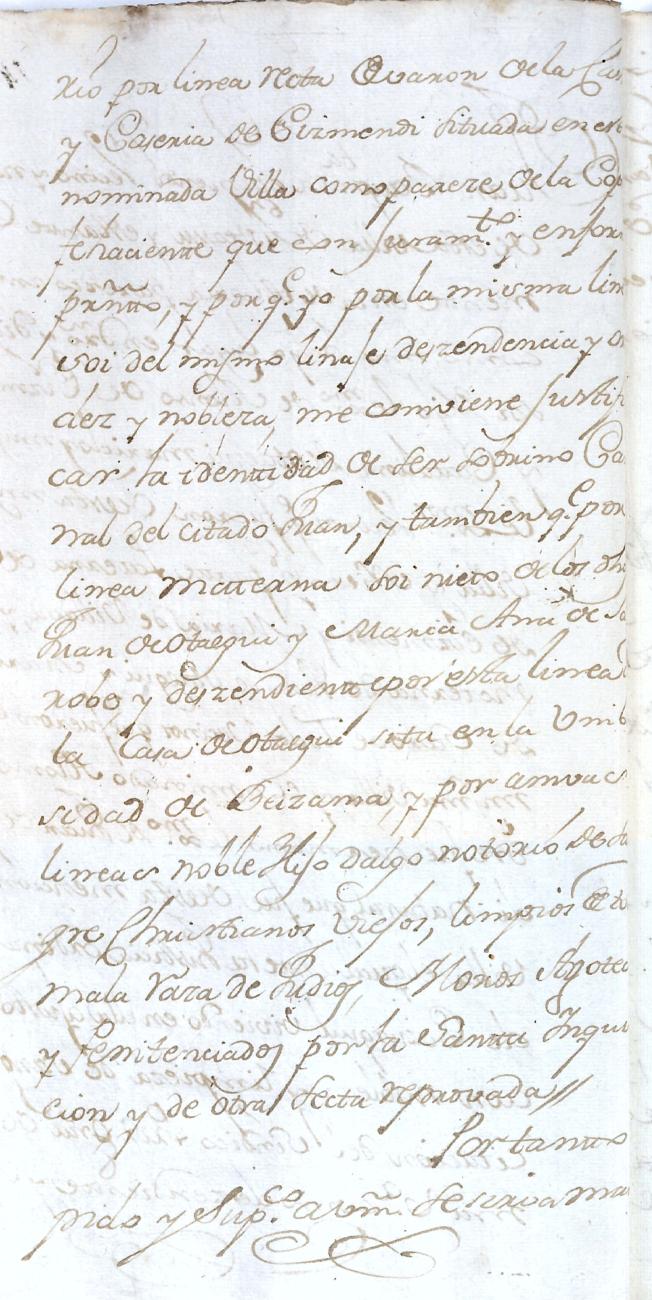 rio por linea recta de varon de la Cas
y Caseria de Eizmendi situada en es
nominada Villa como pareze de la Cop
fehaciente que con Juram.to y en for
prntto, y por q.e yo por la misma lin
soi del mismo linaje deszendencia y
dez y nobleza, me comviene Justifi
car la identtidad de ser sobrino Ca
nal del citado Juan, y tambien q.e por
linea matterna soi nieto de los dh
Juan de Otaegui y Maria Ana de Sa
robe, y deszendientte por esta linea d
la Casa de Otaegui sita en la Unib
sidad de Beizama, y por amvas
lineas noble Hijo dalgo notorio de sa
gre Christianos Viejos, limpios de to
mala raza de Judios, Moros Agotes
y Penitenciados por la Santta Inqui
cion y de otra secta reprovada//
Por tantto
pido y sup.co a vm. se sirva ma